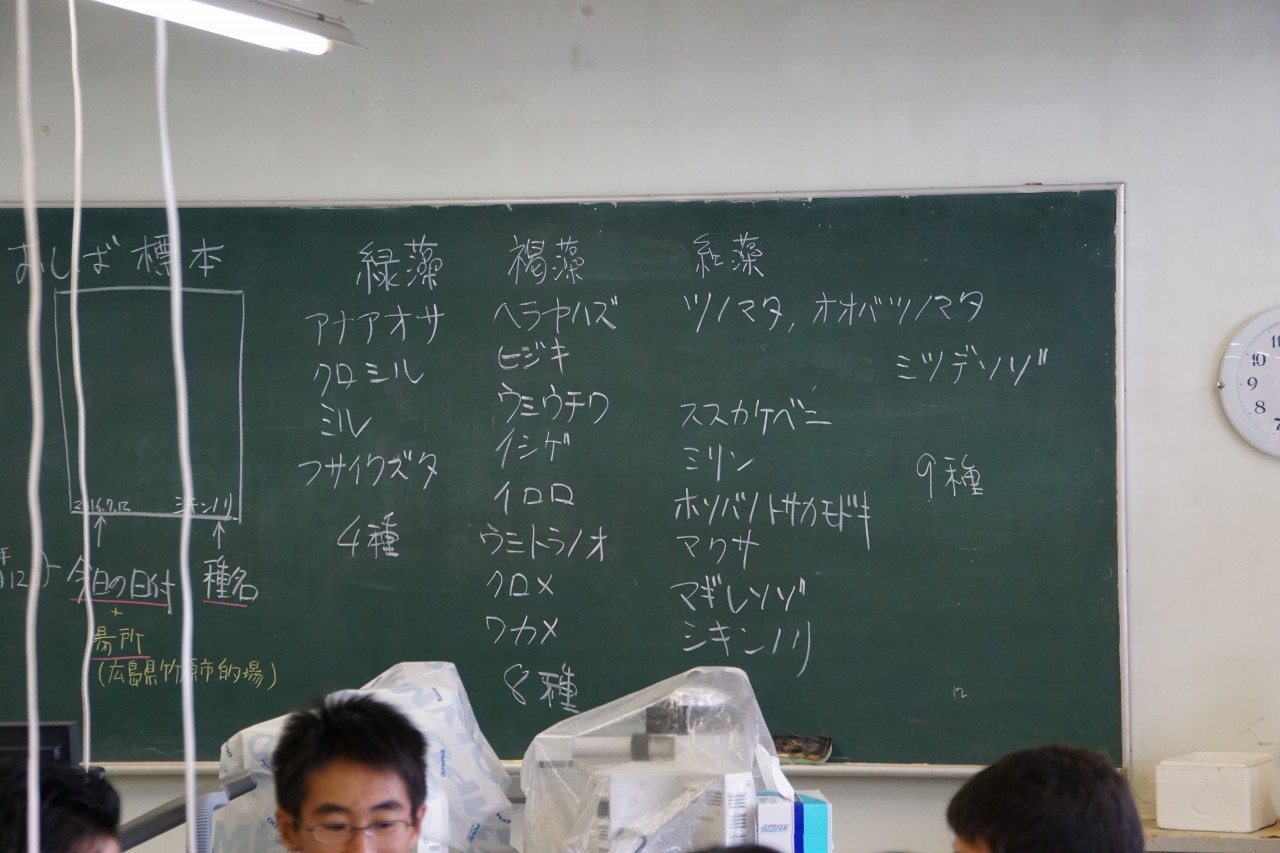 おしば標本
2016.7.12 シキンノリ
今日の日付 種名
+
場所
(広島県竹原市的場)
緑藻
アナアオサ
クロミル
ミル
フサイワズタ
4種
褐藻
ヘラヤハズ
ヒジキ
ウミウチワ
イシゲ
イロロ
ウミトラノオ
クロメ
ワカメ
8種
紅藻
ツノマタ, オオバツノマタ
ミツデソゾ
ススカケベニ
ミリン
ホソバノトサカモドキ
マクサ
マギレソゾ
シキンノリ
9種
12
11
10
9
8
7